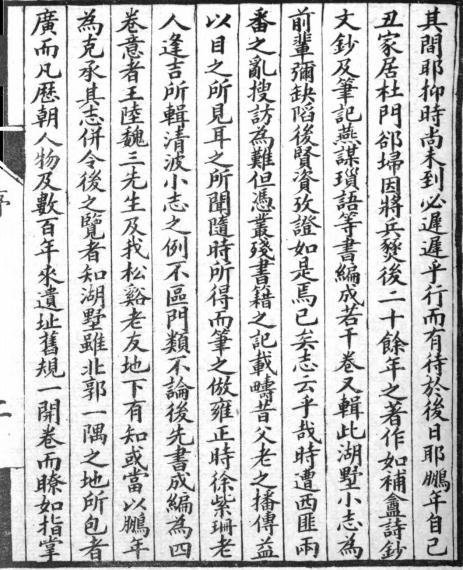 其間耶抑時尚未到必遲遲乎行而有待於後日耶鵬年自己
丑家居杜門郤埽因將兵燹後二十餘年之著作如補盦詩鈔
文鈔及筆記燕謀瑣語等書編成若干卷又輯此湖墅小志為
前輩彌缺陷後賢資攷證如是焉已矣志云乎哉時遭西匪兩
番之亂搜訪為難但憑叢殘書籍之記載疇昔父老之播傳益
以目之所見耳之所聞隨時所得而筆之倣雍正時徐紫珊老
人逢吉所輯清波小志之例不區門類不論後先書成編為四
卷意者王陸魏三先生及我松谿老友地下有知或當以鵬年
為克承其志併令後之覽者知湖墅雖北郭一隅之地所包者
廣而凡歷朝人物及數百年來遺址舊規一開卷而瞭如指掌